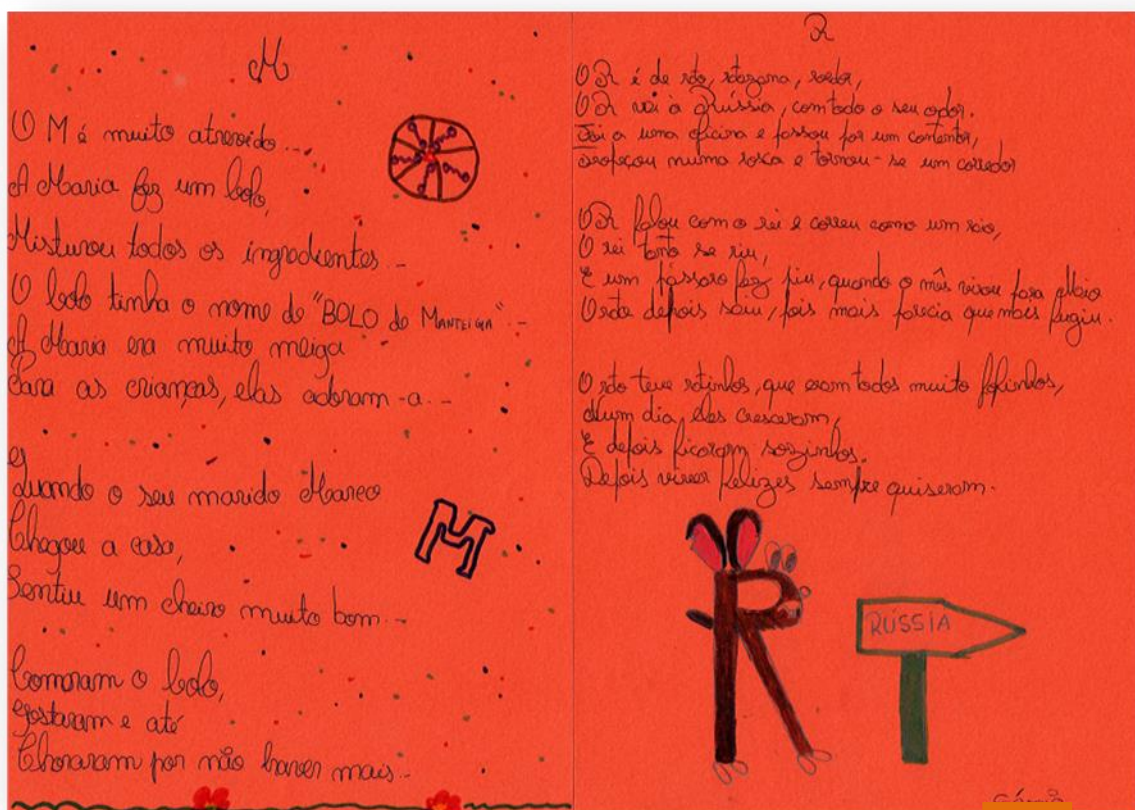 M
O M é muito atrevido...
A Maria fez um bolo,
Misturou todos os ingredientes...
O bolo tinha o nome de "BOLO de MANTEIGA"...
A Maria era muito meiga
Para as crianças, elas adoram-a...
Quando o seu marido Marco
Chegou a casa,
Sentiu um cheiro muito bom...
M
Comeram o bolo,
Gostaram e até
Choraram por não haver mais...
R
O R é de rato, ratazana, roedor,
O R vai à Rússia, com todo o seu odor.
Foi a uma oficina e passou por um contentor,
Tropeçou numa rosca e tornou-se um corredor
O R falou com o rei e correu como um raio,
O rei tanto se riu,
E um pássaro fez piu, quando o mês virou para Maio
O rato depois saiu, pois mais parecia que fugiu.
O rato teve ratinhos, que eram todos muito fofinhos,
Num dia, eles cresceram,
E depois ficaram sozinhos.
Depois viver felizes sempre quiseram.
R
RÚSSIA